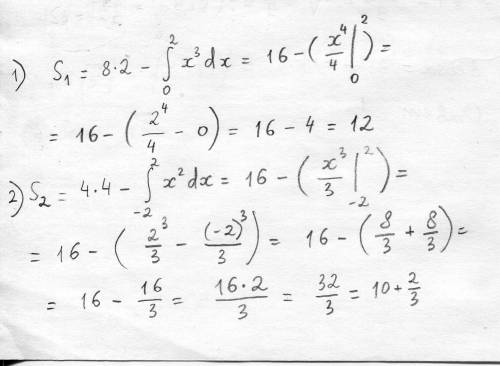 1) S₁ = 8·2 − ∫₀² x³dx = 16 − (x⁴/4 |₀²) =
= 16 − (2⁴/4 − 0) = 16 − 4 = 12
2) S₂ = 4·4 − ∫₋₂² x²dx = 16 − (x³/3 |₋₂²) =
= 16 − (2³/3 − (−2)³/3) = 16 − (8/3 + 8/3) =
= 16 − 16/3 = 16·2/3 = 32/3 = 10 + 2/3